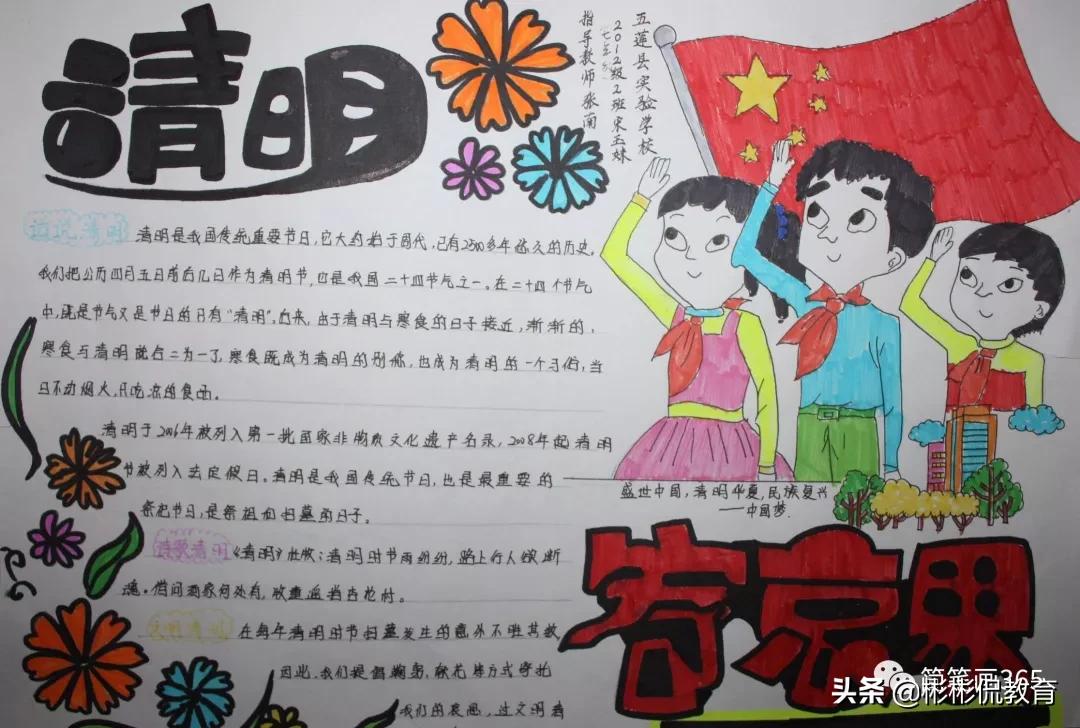 清明
五莲县实验学校
2012级2班宋玉妹
七年级
指导教师张南
话说清明
清明是我国传统重要节日,它大约始于周代,已有2500多年悠久的历史。
我们把公历四月五日前后几日作为清明节,也是我国二十四节气之一。在二十四个节气
中,既是节气又是节日的只有“清明”。后来,由于清明与寒食的日子接近,渐渐的,
寒食与清明就合二为一了,寒食既成为清明的别称,也成为清明的一个习俗,当
日不动烟火,只吃凉的食品。
清明于2006年被列入第一批国家非物质文化遗产名录,2008年起清明
节被列入法定假日。清明是我国传统节日,也是最重要的
祭祀节日,是祭祖和扫墓的日子。
盛世中国,清明华夏,民族复兴
——中国梦.
诗歌清明
《清明》杜牧:清明时节雨纷纷,路上行人欲断
魂。借问酒家何处有,牧童遥指杏花村。
文明清明
在每年清明时节扫墓发生的意外不胜其数
因此,我们提倡鞠躬,献花等方式寄托
我们的哀思,过文明清
寄忘界
笔笔画365
头条@彬彬侃教育